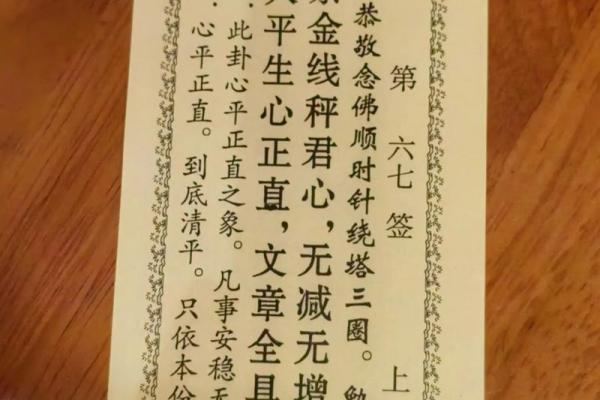 第 六七 签 上
恭敬念佛顺时针绕塔三圈。
金线秤君心，无减无增
平生心正直，文章全具
此卦心平正直之象。凡事安稳无
心平正直。到底清平。只依本份